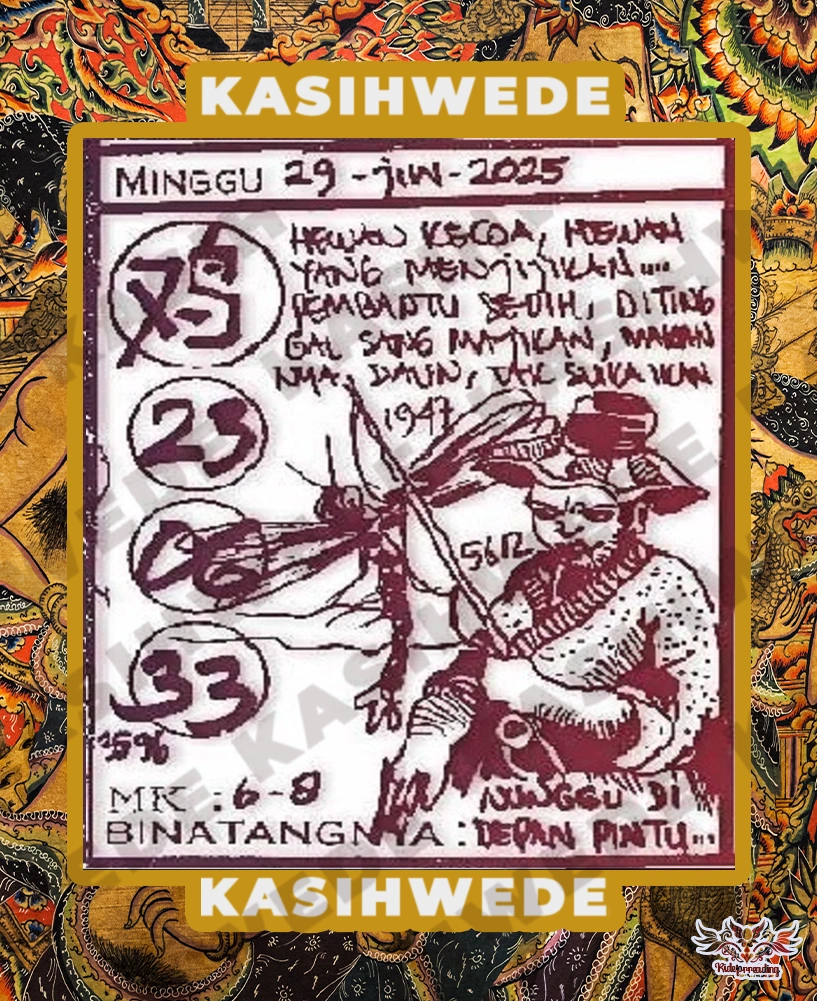 KASIHWEDE
MINGGU 29-jun-2025
HEWAN KECOA, HEWAN
YANG MENJIJIKAN....
PEMBANTU SEDIH, DITING
GAL SANG MAJIKAN, MAKAN
NYA, DAUN, TAK SUKA IKAN
7-5
1947
23
06
5612
33
3596
MK : 6-8
NUNGGU DI
BINATANGNYA : DEPAN PINTU...
KASIHWEDE